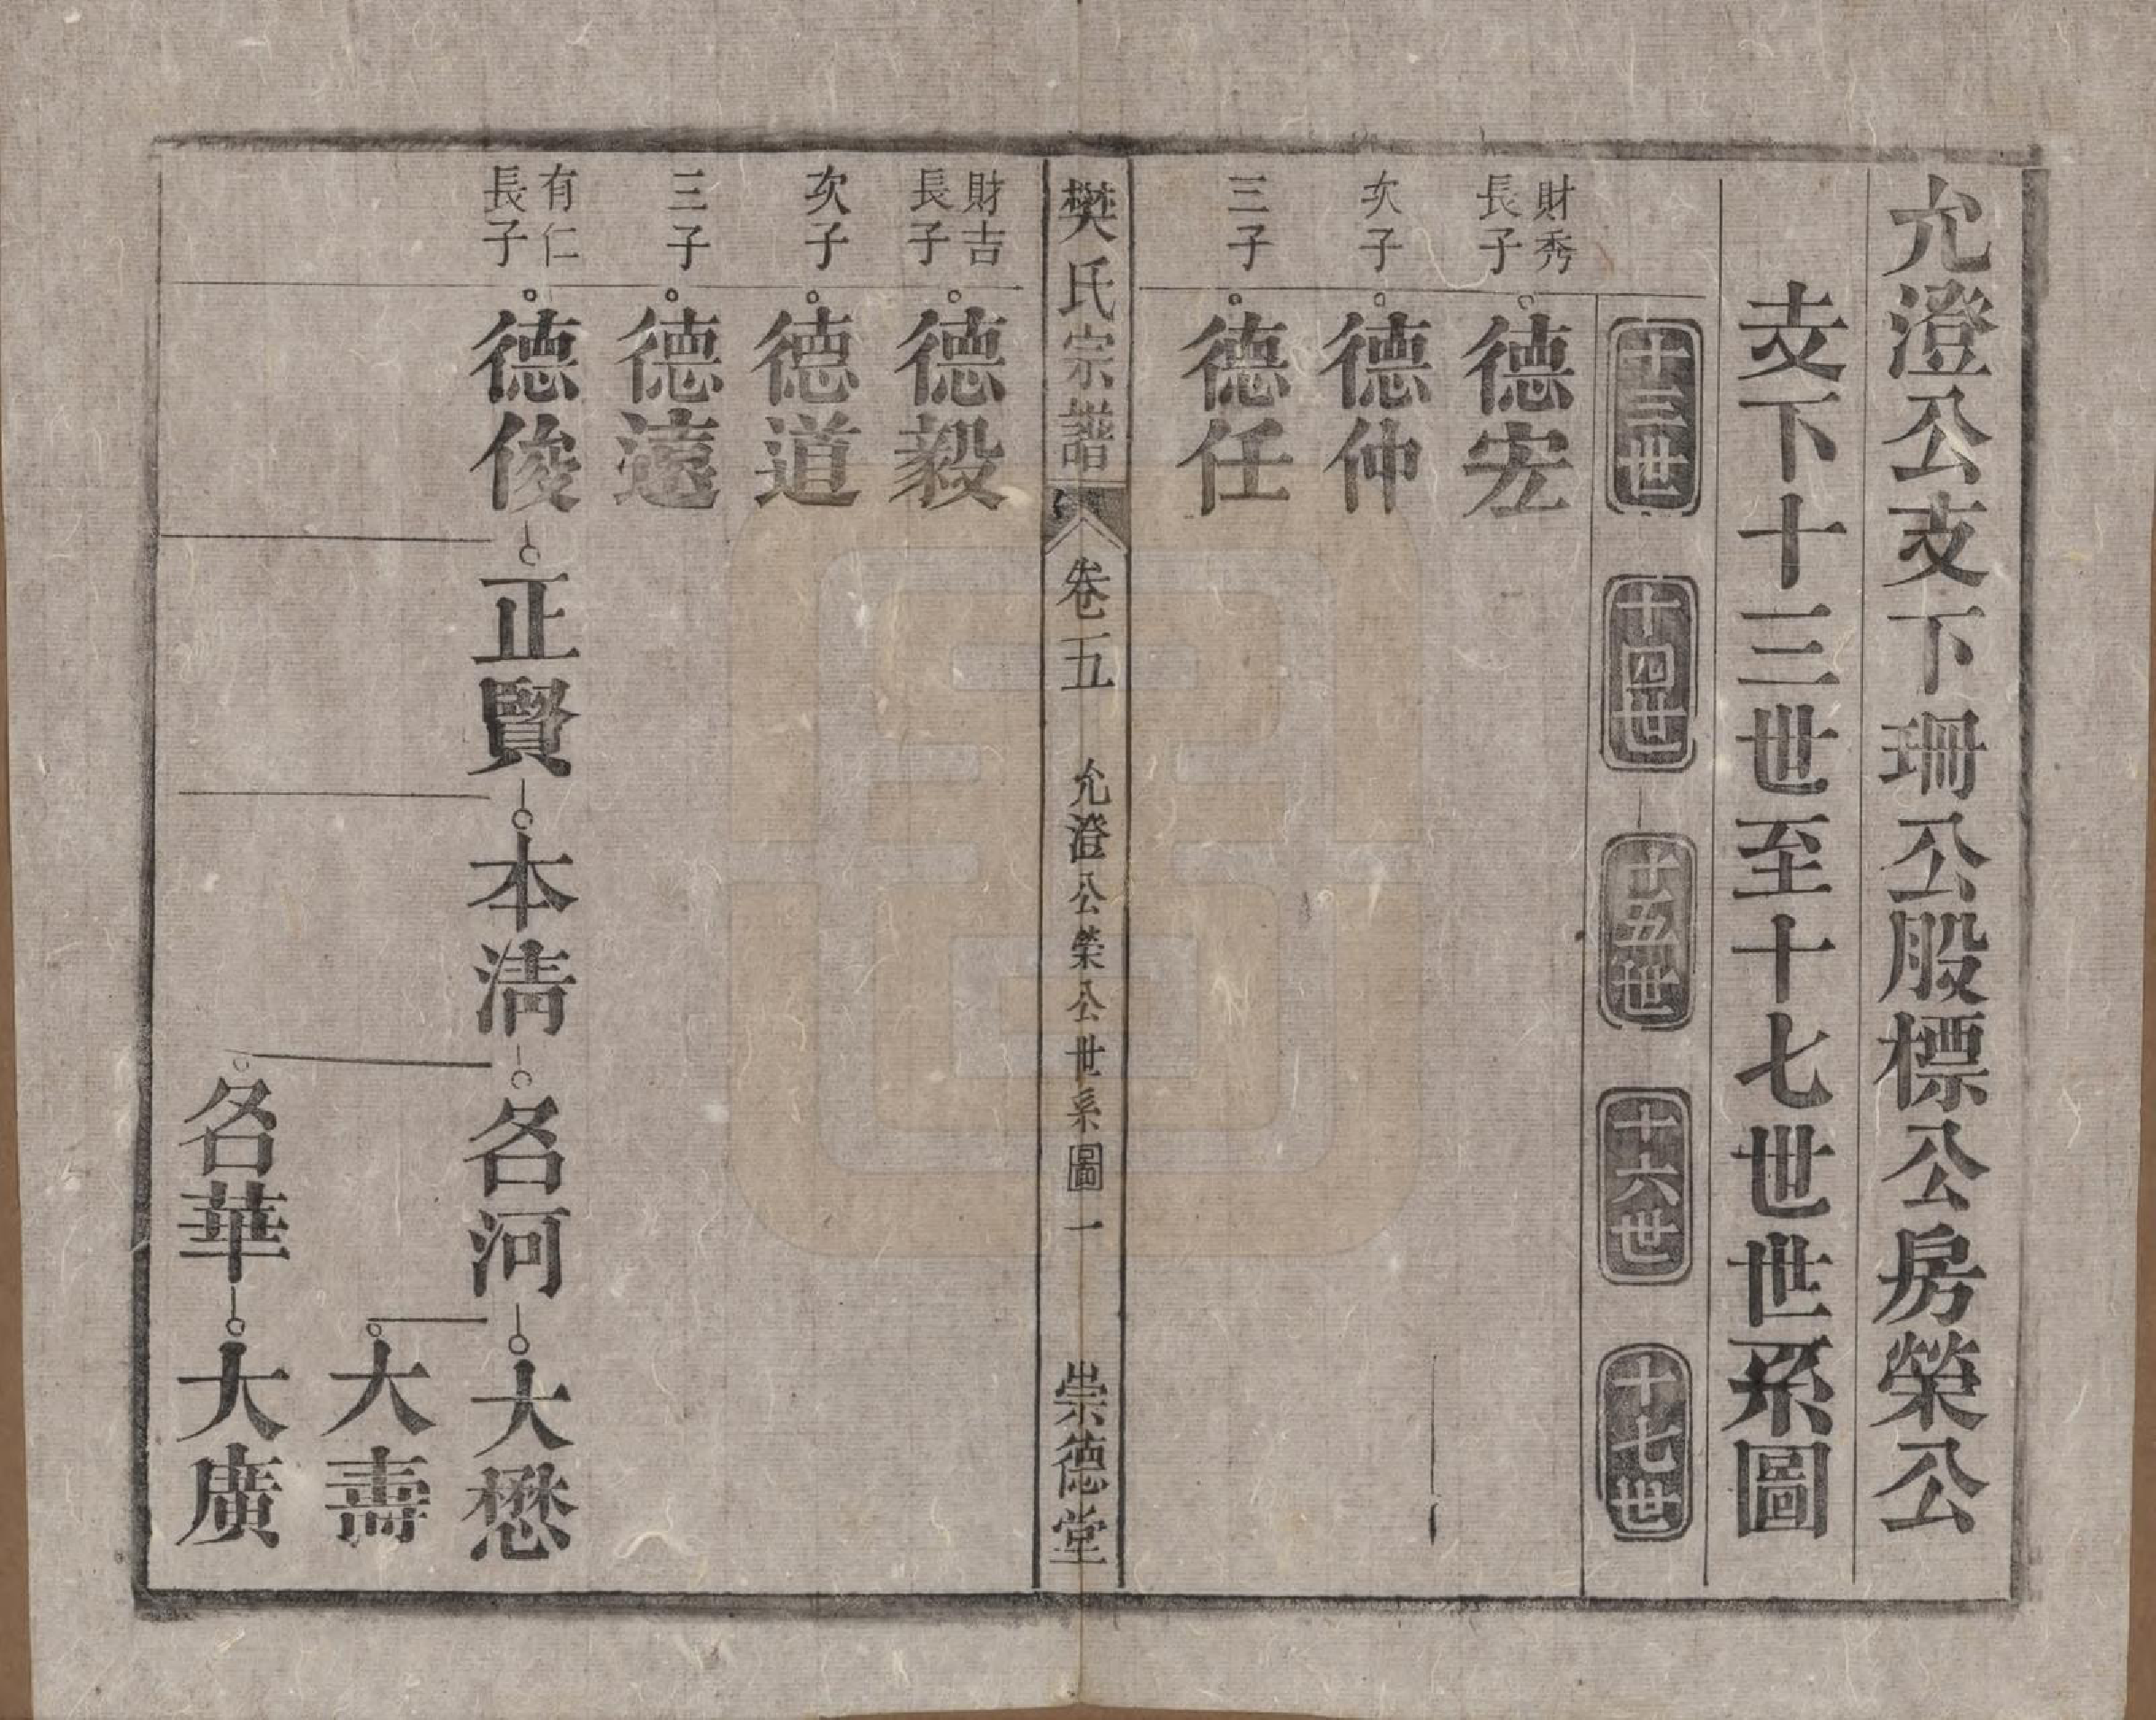 允澄公支下珊公股標公房榮公
支下十三世至十七世世系圖
十三世
十四世
十五世
十六世
十七世
財秀
長子
德宏
次子
德仲
三子
德任
樊氏宗譜
卷五
允澄公榮公世系圖
一
崇德堂
財吉
長子
德毅
次子
德道
三子
德遠
有仁
長子
德俊
正賢
本淸
名河
大懋
大壽
名華
大廣